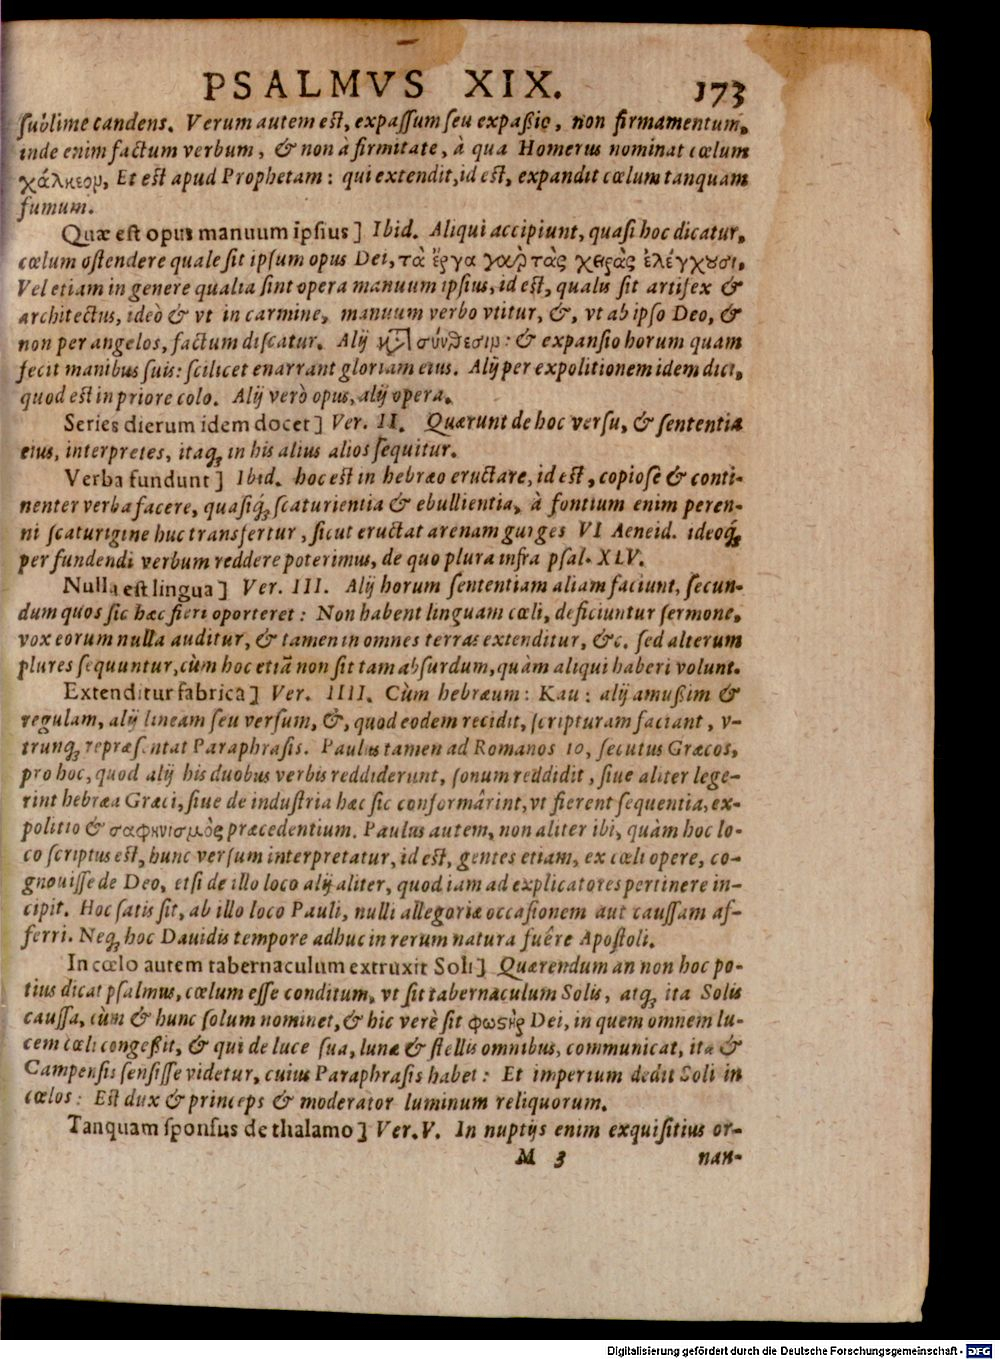 PSALMVS XIX. 173
sublime candens. Verum autem est, expassum seu expaßio, non firmamentum,
inde enim factum verbum, & non à firmitate, à qua Homerus nominat cœlum
χάλκεον, Et est apud Prophetam: qui extendit, id est, expandit cœlum tanquam
fumum.
Quæ est opus manuum ipsius] Ibid. Aliqui accipiunt, quasi hoc dicatur,
cœlum ostendere quale sit ipsum opus Dei, τὰ ἔργα γὰρ τὰς χεῖρὰς ἐλέγχουσι.
Vel etiam in genere qualia sint opera manuum ipsius, id est, qualis sit artifex &
architectus, ideò & vt in carmine, manuum verbo vtitur, &, vt ab ipso Deo, &
non per angelos, factum discatur. Alij κατὰ σύνθεσιν: & expansio horum quam
fecit manibus suis: scilicet enarrant gloriam eius. Alij per expolitionem idem dici,
quod est in priore colo. Alij verò opus, alij opera.
Series dierum idem docet] Ver. II. Quærunt de hoc versu, & sententia
eius, interpretes, itaq; in his alius alios sequitur.
Verba fundunt] Ibid. hoc est in hebræo eructare, id est, copiose & conti-
nenter verba facere, quasiq; scaturientia & ebullientia, à fontium enim peren-
ni scaturigine huc transfertur, sicut eructat arenam gurges VI Aeneid. ideoq;
per fundendi verbum reddere poterimus, de quo plura infra psal. XLV.
Nulla est lingua] Ver. III. Alij horum sententiam aliam faciunt, secun-
dum quos sic hæc fieri oporteret: Non habent linguam cœli, deficiuntur sermone,
vox eorum nulla auditur, & tamen in omnes terras extenditur, &c. sed alterum
plures sequuntur, cùm hoc etiā non sit tam absurdum, quàm aliqui haberi volunt.
Extenditur fabrica] Ver. IIII. Cùm hebræum: Kau: alij amußim &
regulam, alij lineam seu versum, &, quod eodem recidit, scripturam faciant, v-
trunq; repræsentat Paraphrasis. Paulus tamen ad Romanos 10, secutus Græcos,
pro hoc, quod alij his duobus verbis reddiderunt, sonum reddidit, siue aliter lege-
rint hebræa Græci, siue de industria hæc sic conformârint, vt fierent sequentia, ex-
politio & σαφηνισμὸς præcedentium. Paulus autem, non aliter ibi, quàm hoc lo-
co scriptus est, hunc versum interpretatur, id est, gentes etiam, ex cœli opere, co-
gnouisse de Deo, etsi de illo loco alij aliter, quod iam ad explicatores pertinere in-
cipit. Hoc satis sit, ab illo loco Pauli, nulli allegoriæ occasionem aut caussam af-
ferri. Neq; hoc Dauidis tempore adhuc in rerum natura fuêre Apostoli.
In cœlo autem tabernaculum extruxit Soli] Quærendum an non hoc po-
tius dicat psalmus, cœlum esse conditum, vt sit tabernaculum Solis, atq; ita Solis
caussa, cùm & hunc solum nominet, & hic verè sit φωςὴρ Dei, in quem omnem lu-
cem cœli congeßit, & qui de luce sua, lunæ & stellis omnibus, communicat, ita &
Campensis sensisse videtur, cuius Paraphrasis habet: Et imperium dedit Soli in
cœlos: Est dux & princeps & moderator luminum reliquorum.
Tanquam sponsus de thalamo] Ver. V. In nuptijs enim exquisitius or-
M 3 nan-
Digitalisierung gefördert durch die Deutsche Forschungsgemeinschaft - DFG